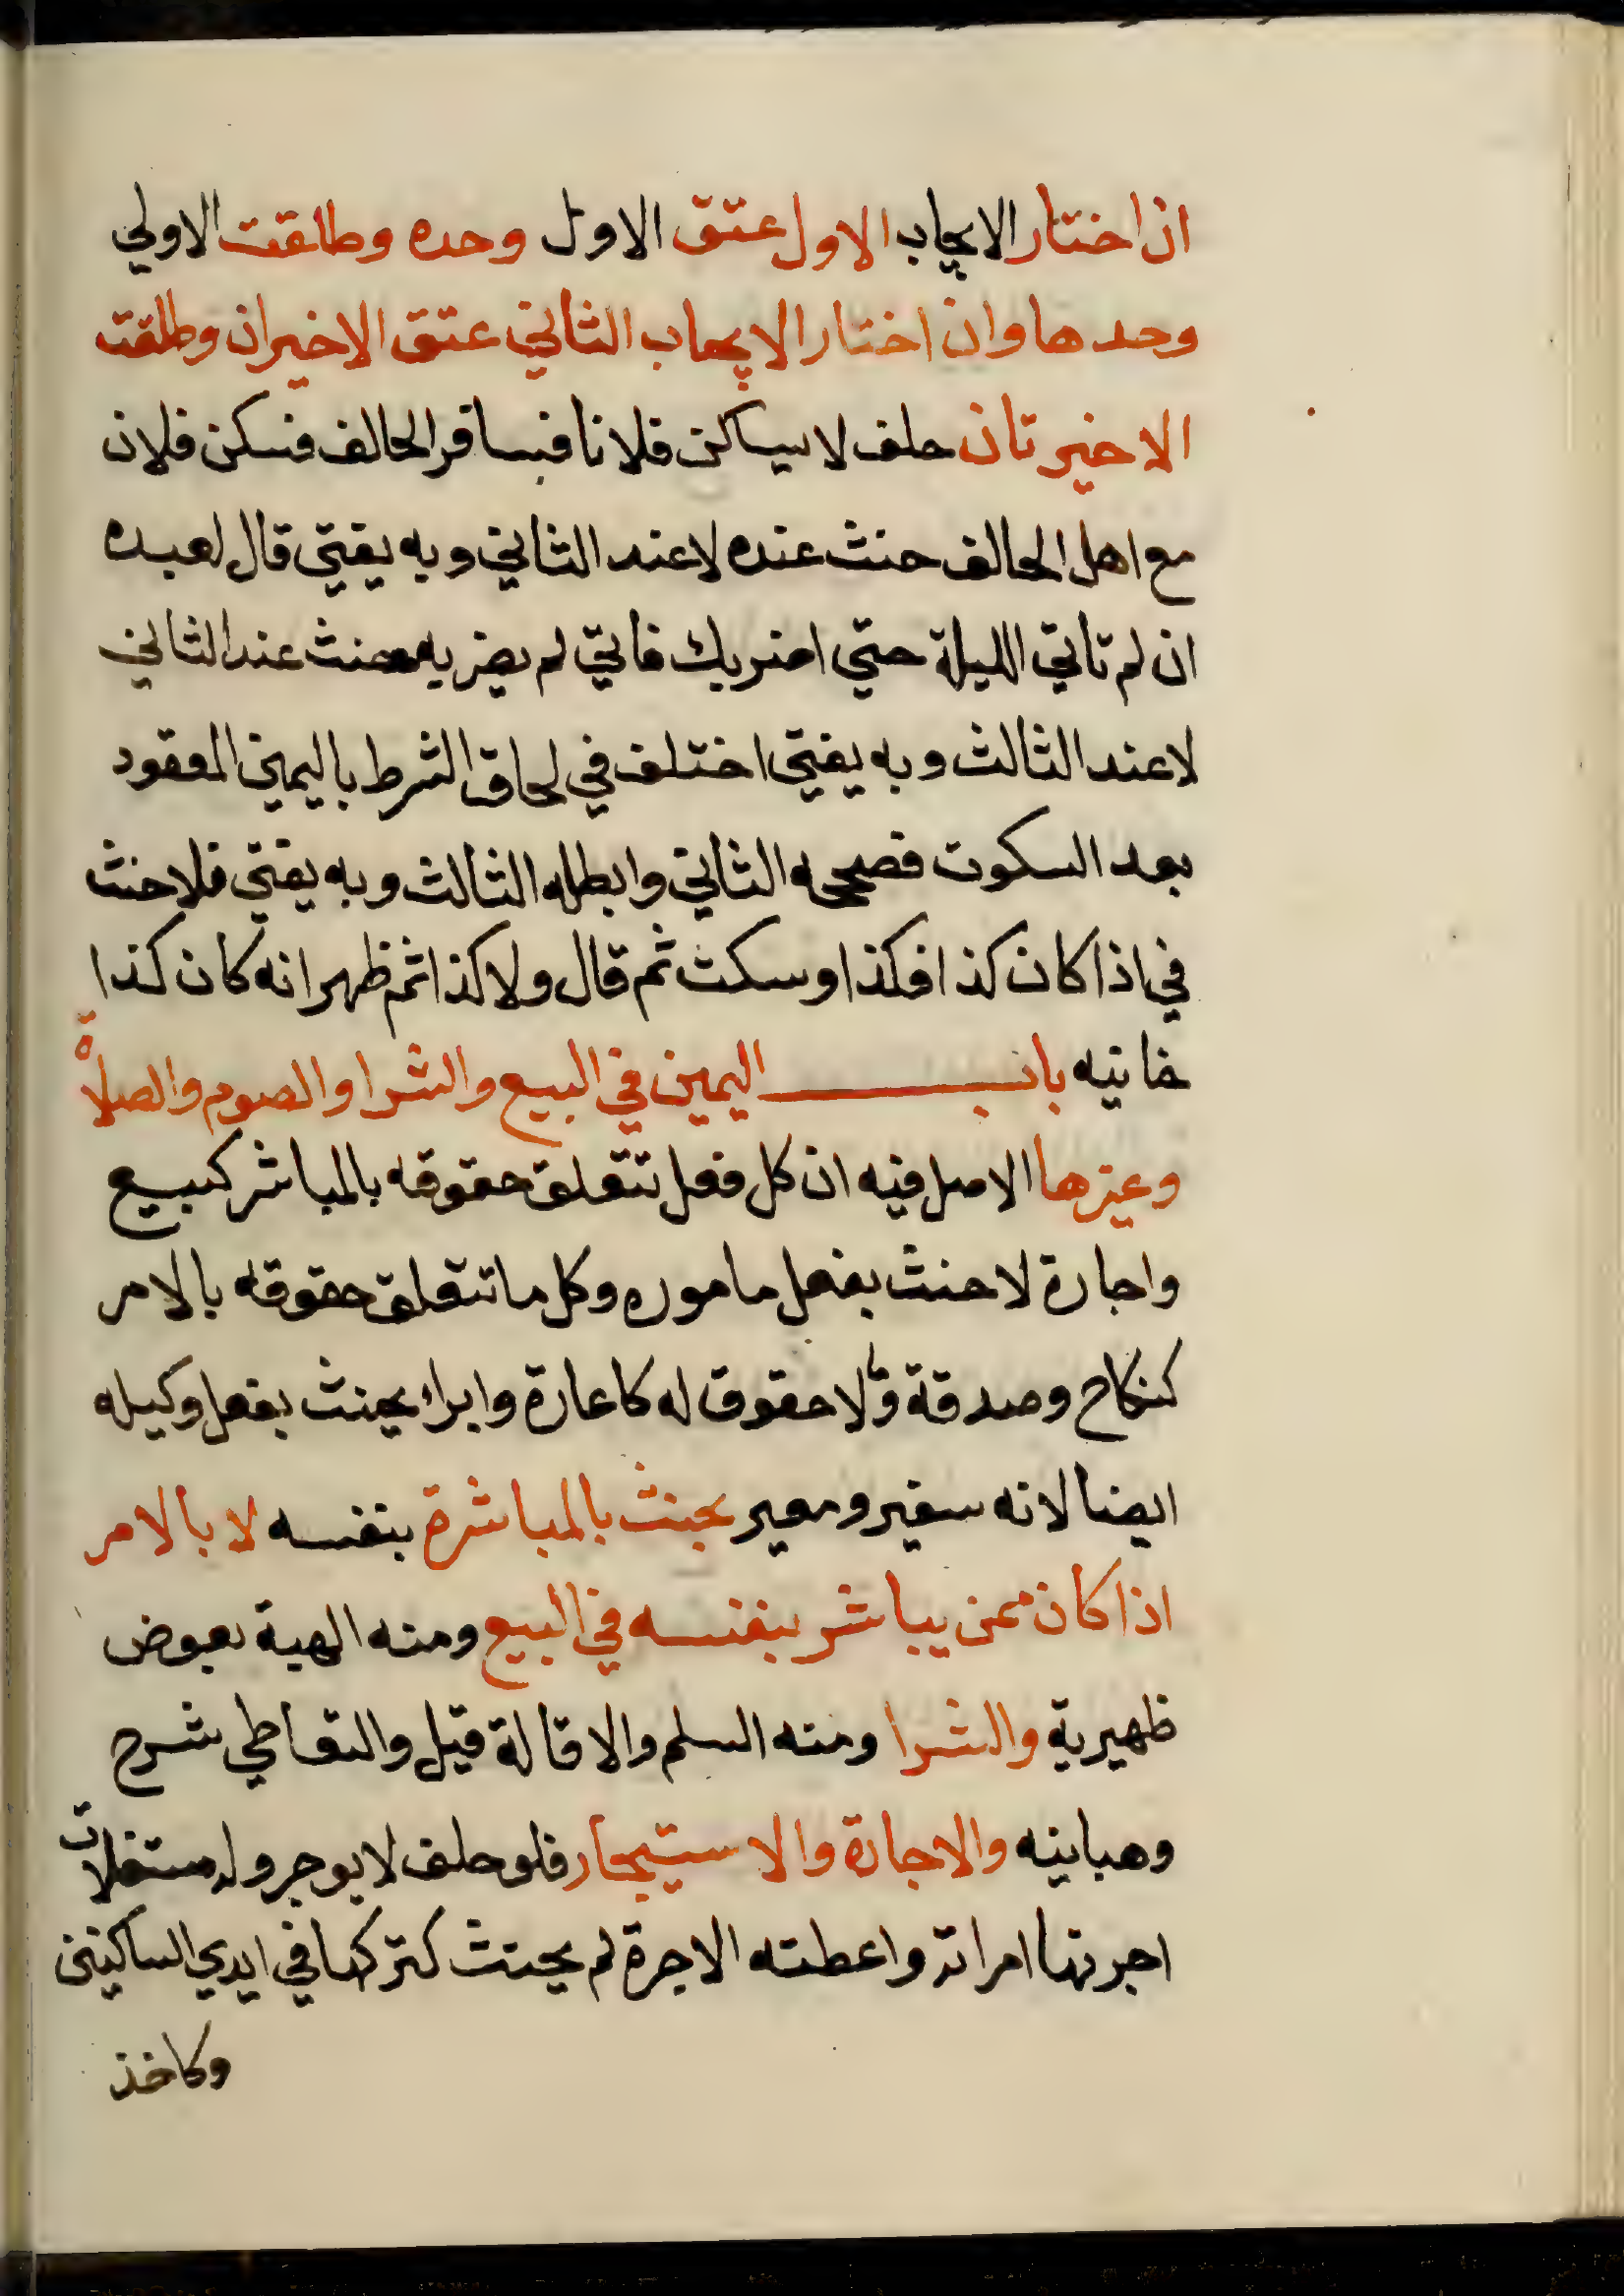 ان اختار الايجاب الاول عتق الاول وحده وطلقت الاولي
وحدها وان اختار الايجاب الثاني عتق الاخيران وطلقت
الاخيرتان حلف لا يساكن فلانا فسافر الحالف فسكن فلان
مع اهل الحالف حنث عنده لا عند الثاني وبه يفتي قال لعبده
ان لم تاتي الليلة حتي اضربك فاتي لم يضربه حنث عند الثاني
لا عند الثالث وبه يفتي اختلف في لحاق الشرط باليمين المعقود
بعد السكوت فصححه الثاني وابطله الثالث وبه يفتي فلا حنث
في اذا كان كذا فكذا وسكت ثم قال ولا كذا ثم ظهر انه كان كذا
خانيه باب اليمين في البيع والشرا والصوم والصلاة
وغيرها الاصل فيه ان كل فعل تتعلق حقوقه بالمباشر كبيع
واجارة لا حنث بفعل ماموره وكل ما تتعلق حقوقه بالامر
كنكاح وصدقة ولا حقوق له كاعارة وابراء يحنث بفعل وكيله
ايضا لانه سفير ومعبر يحنث بالمباشرة بنفسه لا بالامر
اذا كان ممن يباشر بنفسه في البيع ومنه الهبة بعوض
ظهيرية والشرا ومنه السلم والاقالة قيل والتعاطي شرح
وهبانيه والاجارة والاستيجار فلو حلف لا يوجر وله مستغلات
اجرتها امراته واعطته الاجرة لم يحنث كتركها في ايدي الساكنين
وكاخذ